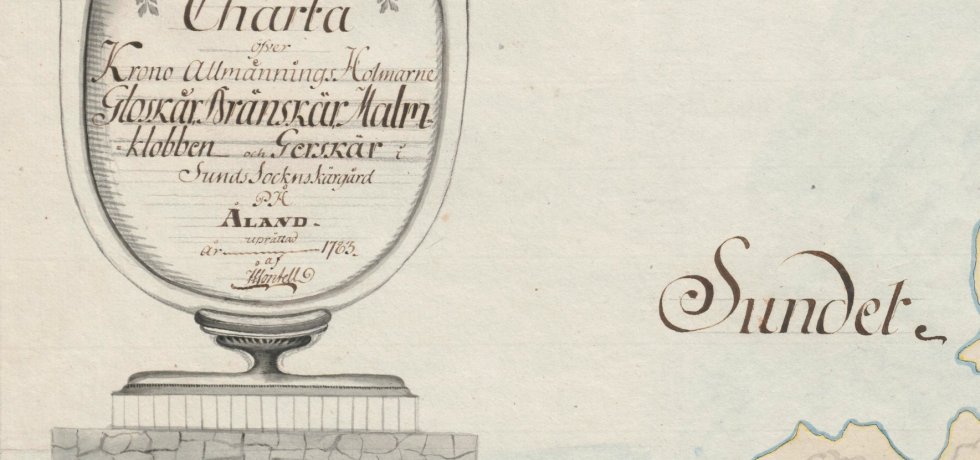 Charta
öfver
Krono Allmännings Holmarne
Gloskär, Bränskär, Malm-
klobben och Gerskär i
Sunds Sockns skärgård
PÅ
ÅLAND.
uprättad
år 1783.
af
Montell
Sundet